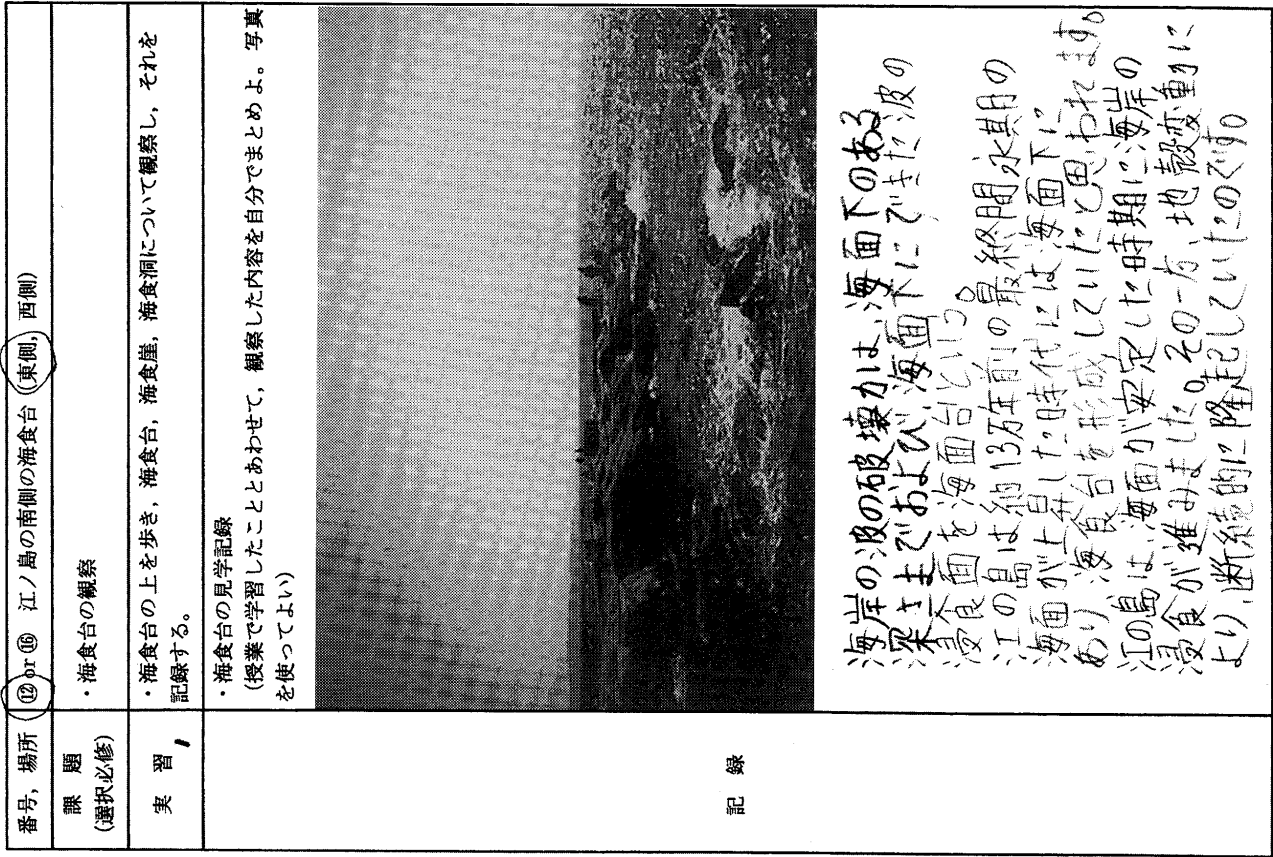 番号，場所 ⑫ or ⑯ 江ノ島の南側の海食台 (東側，西側)
課題
(選択必修)
・海食台の観察
実習
・海食台の上を歩き，海食台，海食崖，海食洞について観察し，それを
記録する。
記録
・海食台の見学記録
(授業で学習したこととあわせて，観察した内容を自分でまとめよ。写真
を使ってよい)
海岸の波の破壊力は、海面下のある
深さまでおよび、海面下にできた波の
浸食面を海面台という。
江の島は約13万年前の最終間氷期の
海面が上昇した時代には海面下に
あり 海食台を形成していたと思われます。
江の島は、海面が安定した時期に海岸の
浸食が進みました。その一方、地殻変動に
より、断続的に隆起していたのです。